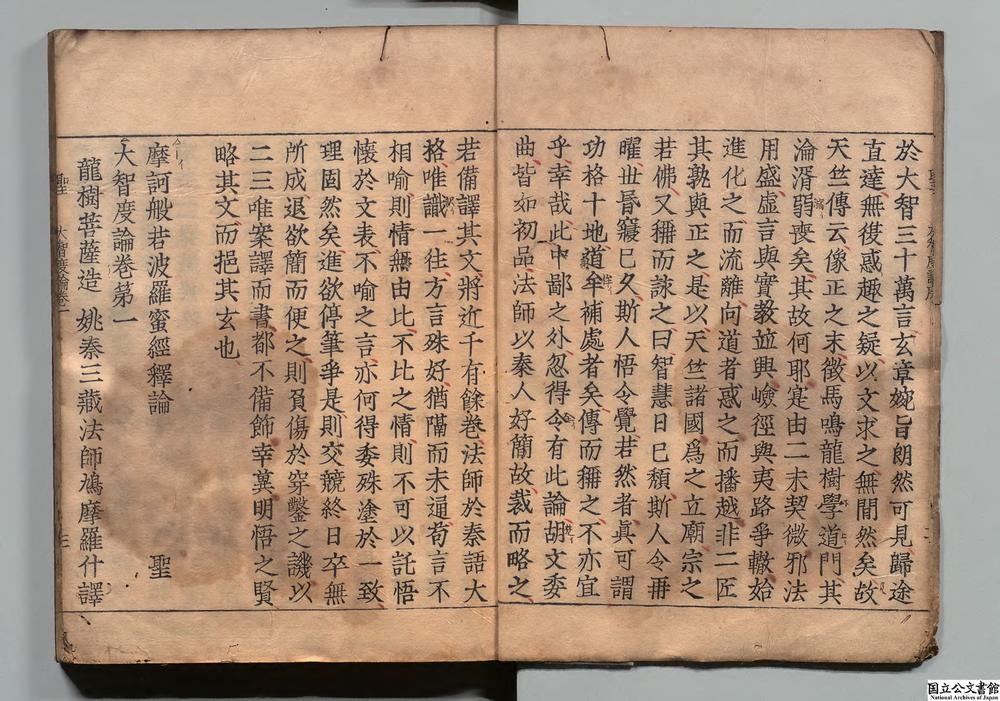 於大智三十萬言玄章婉旨朗然可見歸途
直達無復惑趣之疑以文求之無間然矣故
天竺傳云像正之末微馬鳴龍樹學道門其
淪湑弱喪矣其故何耶寔由二末契微邪法
用盛虛言與實教並興嶮徑與夷路爭轍始
進化之而流離向道者惑之而播越非二匠
其孰與正之是以天竺諸國爲之立廟宗之
若佛又稱而詠之曰智慧日已頹斯人令再
曜世昏寢已久斯人悟令覺若然者眞可謂
功格十地道牟補處者矣傳而稱之不亦宜
乎幸哉此中鄙之外忽得令有此論胡文委
曲皆如初品法師以秦人好簡故裁而略之
若備譯其文將近千有餘卷法師於秦語大
格唯識一往方言殊好猶隔而未通苟言不
相喻則情無由比不比之情則不可以託悟
懷於文表不喻之言亦何得委殊塗於一致
理固然矣進欲停筆爭是則交競終日卒無
所成退欲簡而便之則負傷於穿鑿之譏以
二三唯案譯而書都不備飾幸冀明悟之賢
略其文而挹其玄也
摩訶般若波羅蜜經釋論 聖
大智度論卷第一
龍樹菩薩造 姚秦三藏法師鳩摩羅什譯
国立公文書館
National Archives of Japan